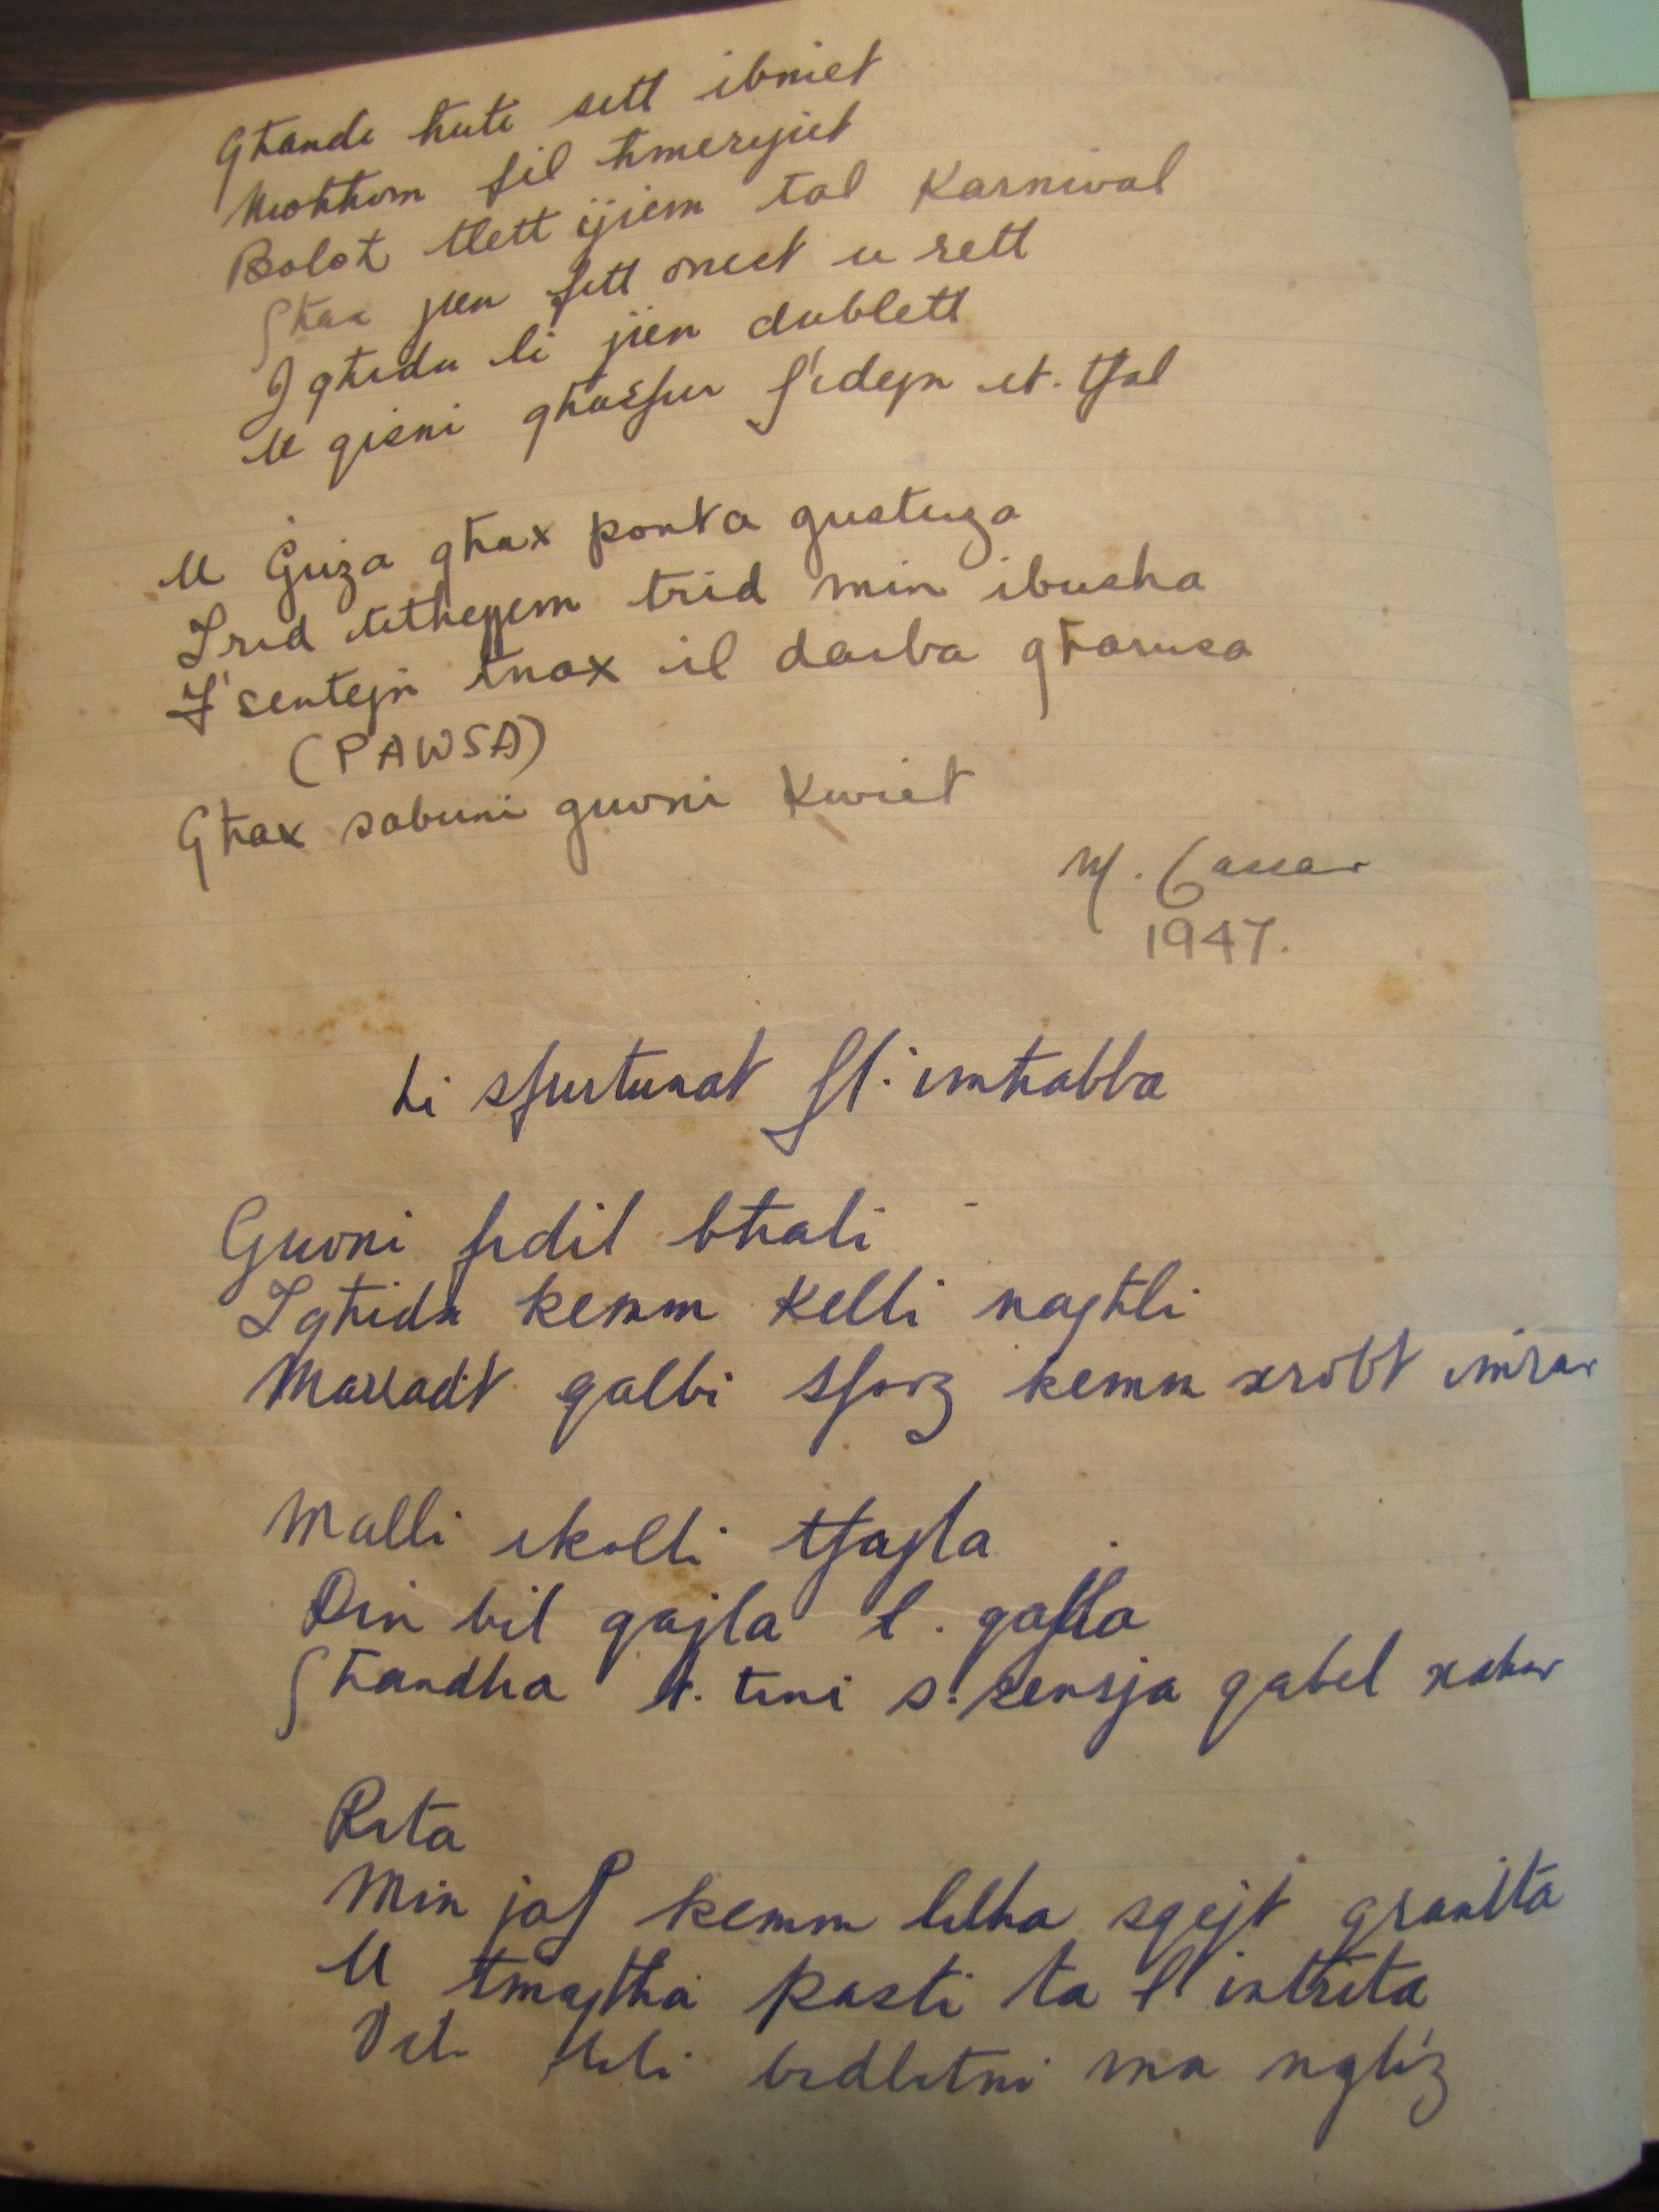 Għandi ħuti sitt ibniet
Moħħom fil ħmerijiet
Bolot tlett ijiem tal Karnival
Għax jien fitt onest u rett
Igħidu li jien dublett
U qisni għasfur f'idejn it. tfal
U Ġuża għax ponta gustuza
Trid titheġġem trid min ibusha
F'sentejn tnax il darba għarusa
(PAWSA)
Għax sabuni guvni Kwiet
M. Cassar
1947.
Li sfurtunat fl. imħabba
Guvni fidil bħali
Igħidu kemm Kelli najtli
Marradt qalbi sforz kemm xrobt imrar
Malli ikolli tfajla
Din bil qajla l. qalla
Għandha t. tini s. sensja qabel xahar
Rita
Min jaf kemm lilha sqejt granita
U tmajtha pasti ta l'intrita
Dil lili bidlitni ma ngliż